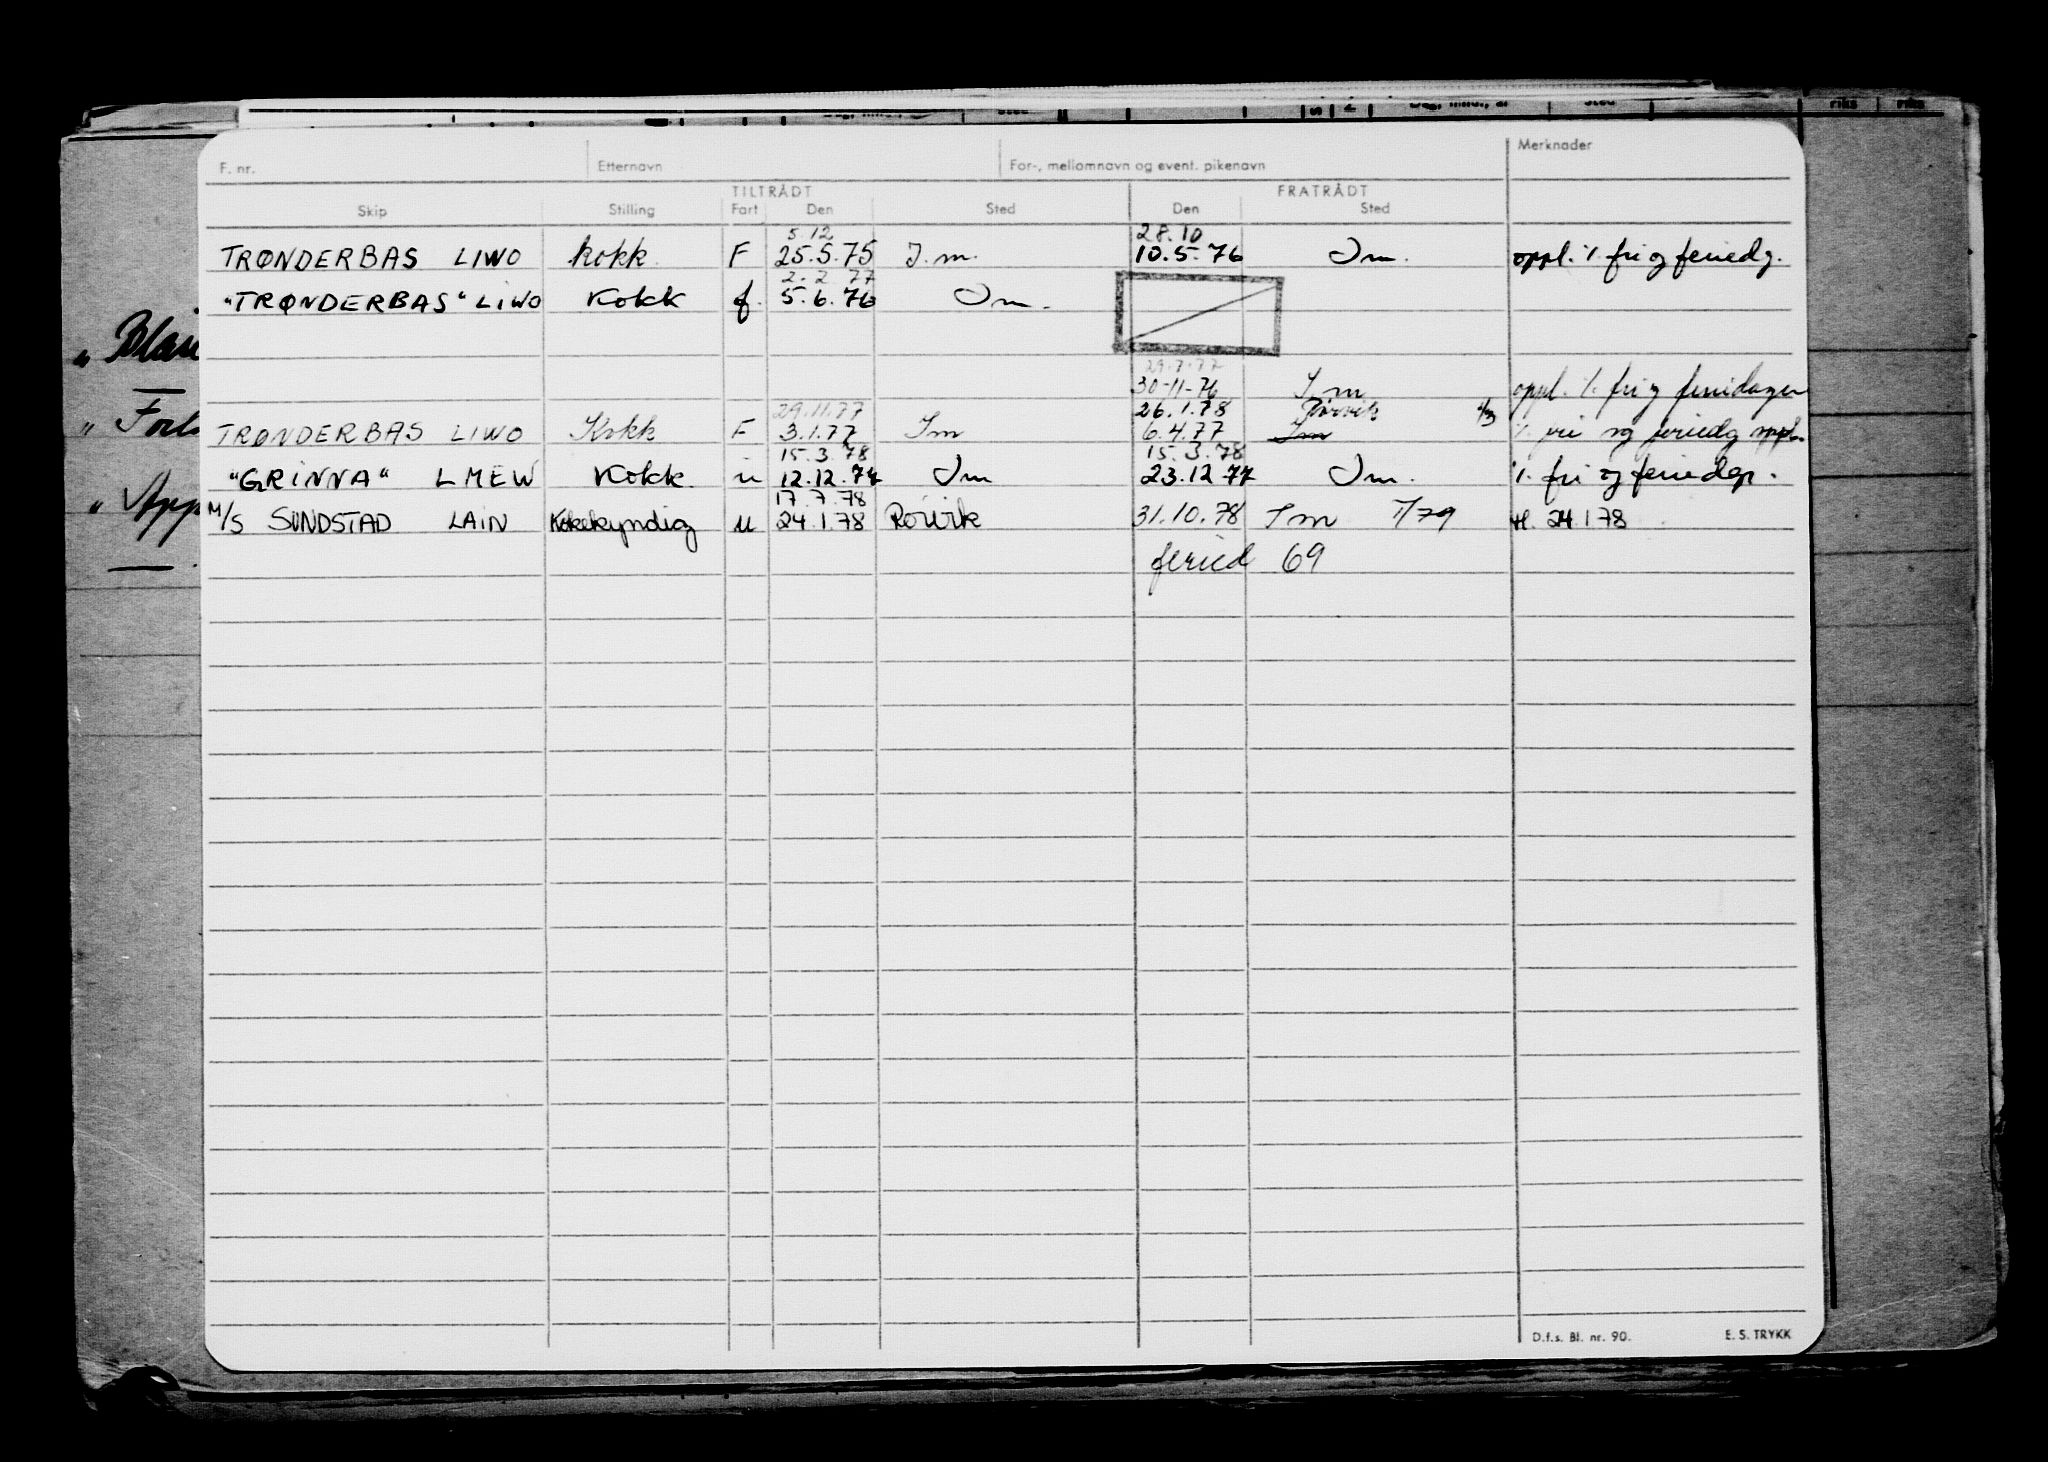 F. nr. Etternavn For-, mellomnavn og event. pikenavn Merknader
TILTRÅDT FRATRÅDT
Skip Stilling Fart Den Sted Den Sted
5.12 28.10
TRØNDERBAS LIWO kokk F 25.5.75 I.m. 10.5.76 Im. oppl. %. fri og feriedg.
2.2.77
"TRØNDERBAS" LIWO Kokk f. 5.6.76 Im.
29.7.77
30-11-76 Im oppl. %. fri og feriedager
29.11.77 26.1.78 Rørvik
TRØNDERBAS LIWO Kokk F 3.1.77 Im 6.4.77 Im %. fri og feriedg oppl.
15.3.78 15.3.78
"GRINNA" LMEW Kokk u 12.12.77 Im 23.12.77 Im. %. fri og feriedgr.
17.7.78
M/S SUNDSTAD LAIN Kokekyndig u 24.1.78 Rørvik 31.10.78 Im 1/79 24.1.78
feried 69
D.f.s. Bl. nr. 90. E. S. TRYKK